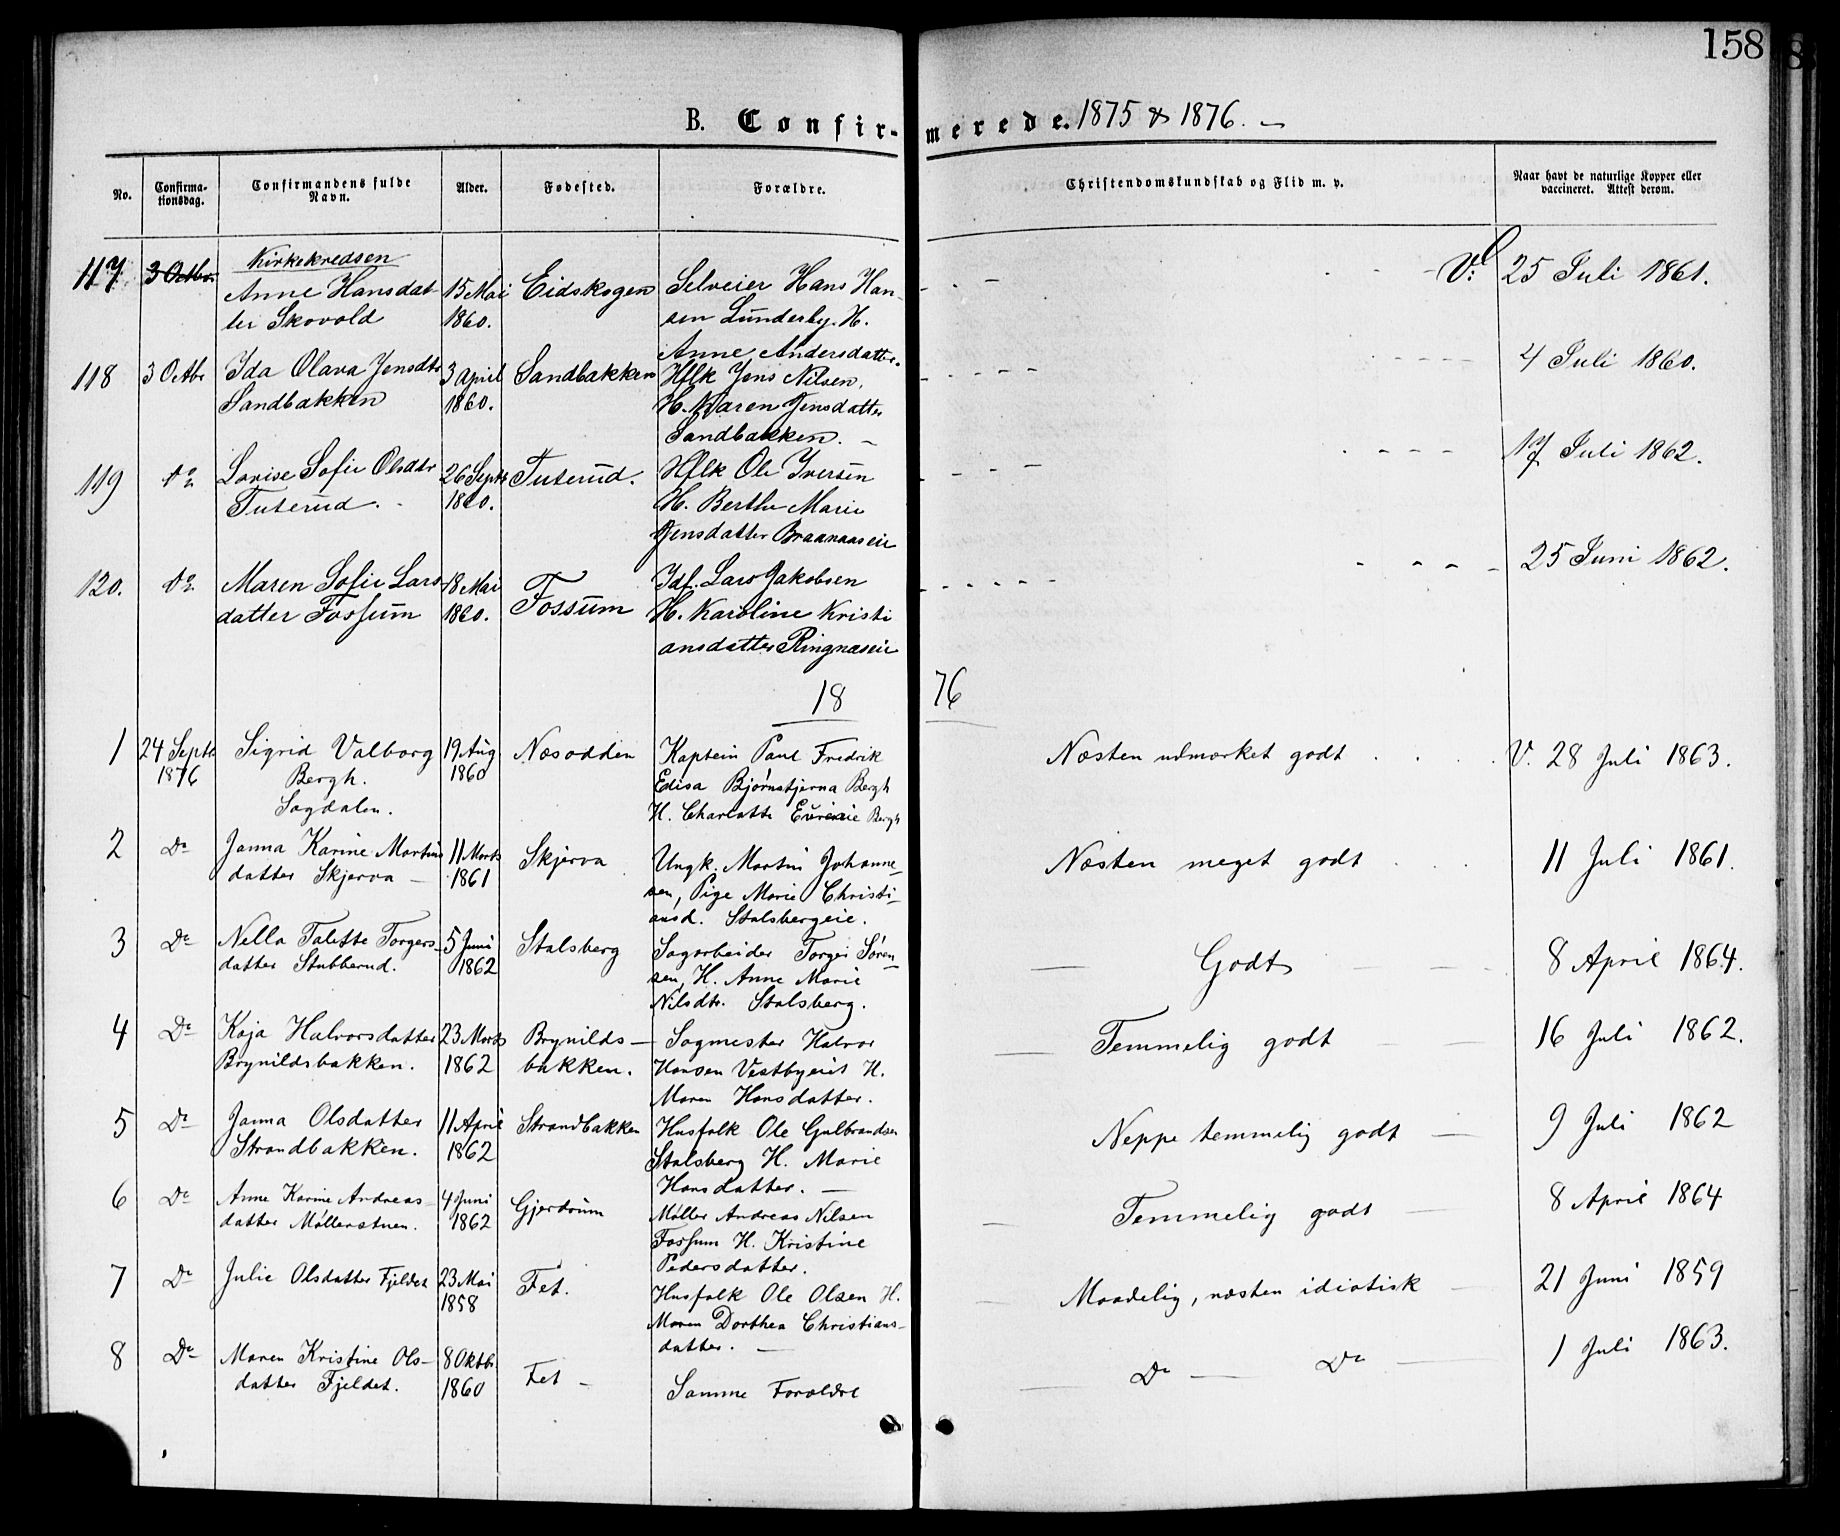 158
B. Confirmerede. 1875 & 1876. –
No.
Confirmationsdag.
Confirmandens fulde Navn.
Alder.
Fødested.
Forældre.
Christendomskundskab og Flid m. v.
Naar havt de naturlige Kopper eller vaccineret. Attest derom.
Kirkekredsen
117 3 Octbr. Anne Hansdat 15 Mai Eidskogen Selveier Hans Han- V. 25 Juli 1861.
ter Skovold 1860. sen Lunderby. H.
Anne Andersdatter.
118 3 Octbr Ida Olava Jensdtr 3 April Sandbakken Hflk Jens Nilsen, - - - - - 4 Juli 1860.
Sandbakken 1860. H. Maren Jensdatter
Sandbakken. –
119 Do Lovise Sofie Olsdtr 26 Septr Tuterud. Hflk Ole Iversen - - - 17 Juli 1862.
Tuterud. 1860. H. Berthe Marie
Jensdatter Braanaaseie
120. Do Maren Sofie Lars 18 Mai Fossum Idf. Lars Jakobsen - - - - - 25 Juni 1862.
datter Fossum 1860. H. Karoline Kristi
ansdatter Ringnæseie
18 76
1 24 Septr Sigrid Valborg 19 Aug Næsodden Kaptein Paul Fredrik Næsten udmærket godt V. 28 Juli 1863.
1876 Bergh. 1860 Edisa Bjørnstjerna Bergh
Sagdalen. H. Charlotte Bergh
2 Do Janna Karine Martins 11 Marts Skjerva Ungk. Martin Johanne- Næsten meget godt 11 Juli 1861.
datter Skjerva – 1861 sen, Pige Marie Christi-
ansd. Stalsbergeie.
3 Do Nella Talette Torgers- 5 Juni Stalsberg Sagarbeider Torger Søren- — Godt — 8 April 1864.
datter Stubberud. 1862 sen, H. Anne Marie
Nilsdtr. Stalsberg.
4 Do Kaja Halvorsdatter 23 Marts Brynilds- Sagmester Halvor — Temmelig godt — 16 Juli 1862.
Brynildsbakken. 1862 bakken. Hansen Vestbyeiet H.
Maren Hansdatter.
5 Do Janna Olsdatter 11 April Strandbakken Husfolk Ole Gulbrandsen Neppe temmelig godt — 9 Juli 1862
Strandbakken. 1862 Stalsberg H. Marie
Hansdatter. —
6 Do Anne Karine Andreas- 4 Juni Gjerdrum Møller Andreas Nilsen — Temmelig godt — 8 April 1864
datter Møllerstuen. 1862 Fossum H. Kristine
Pedersdatter.
7 Do Julie Olsdatter Fjeldet 23 Mai Fet. Husfolk Ole Olsen H. — Maadelig, næsten idiotisk — 21 Juni 1859
1858 Maren Dorthea Christians-
datter. —
8 Do Maren Kristine Ols- 8 Oktbr. Fet – Samme Forældre — Do — Do — 1 Juli 1863.
datter Fjeldet. 1860